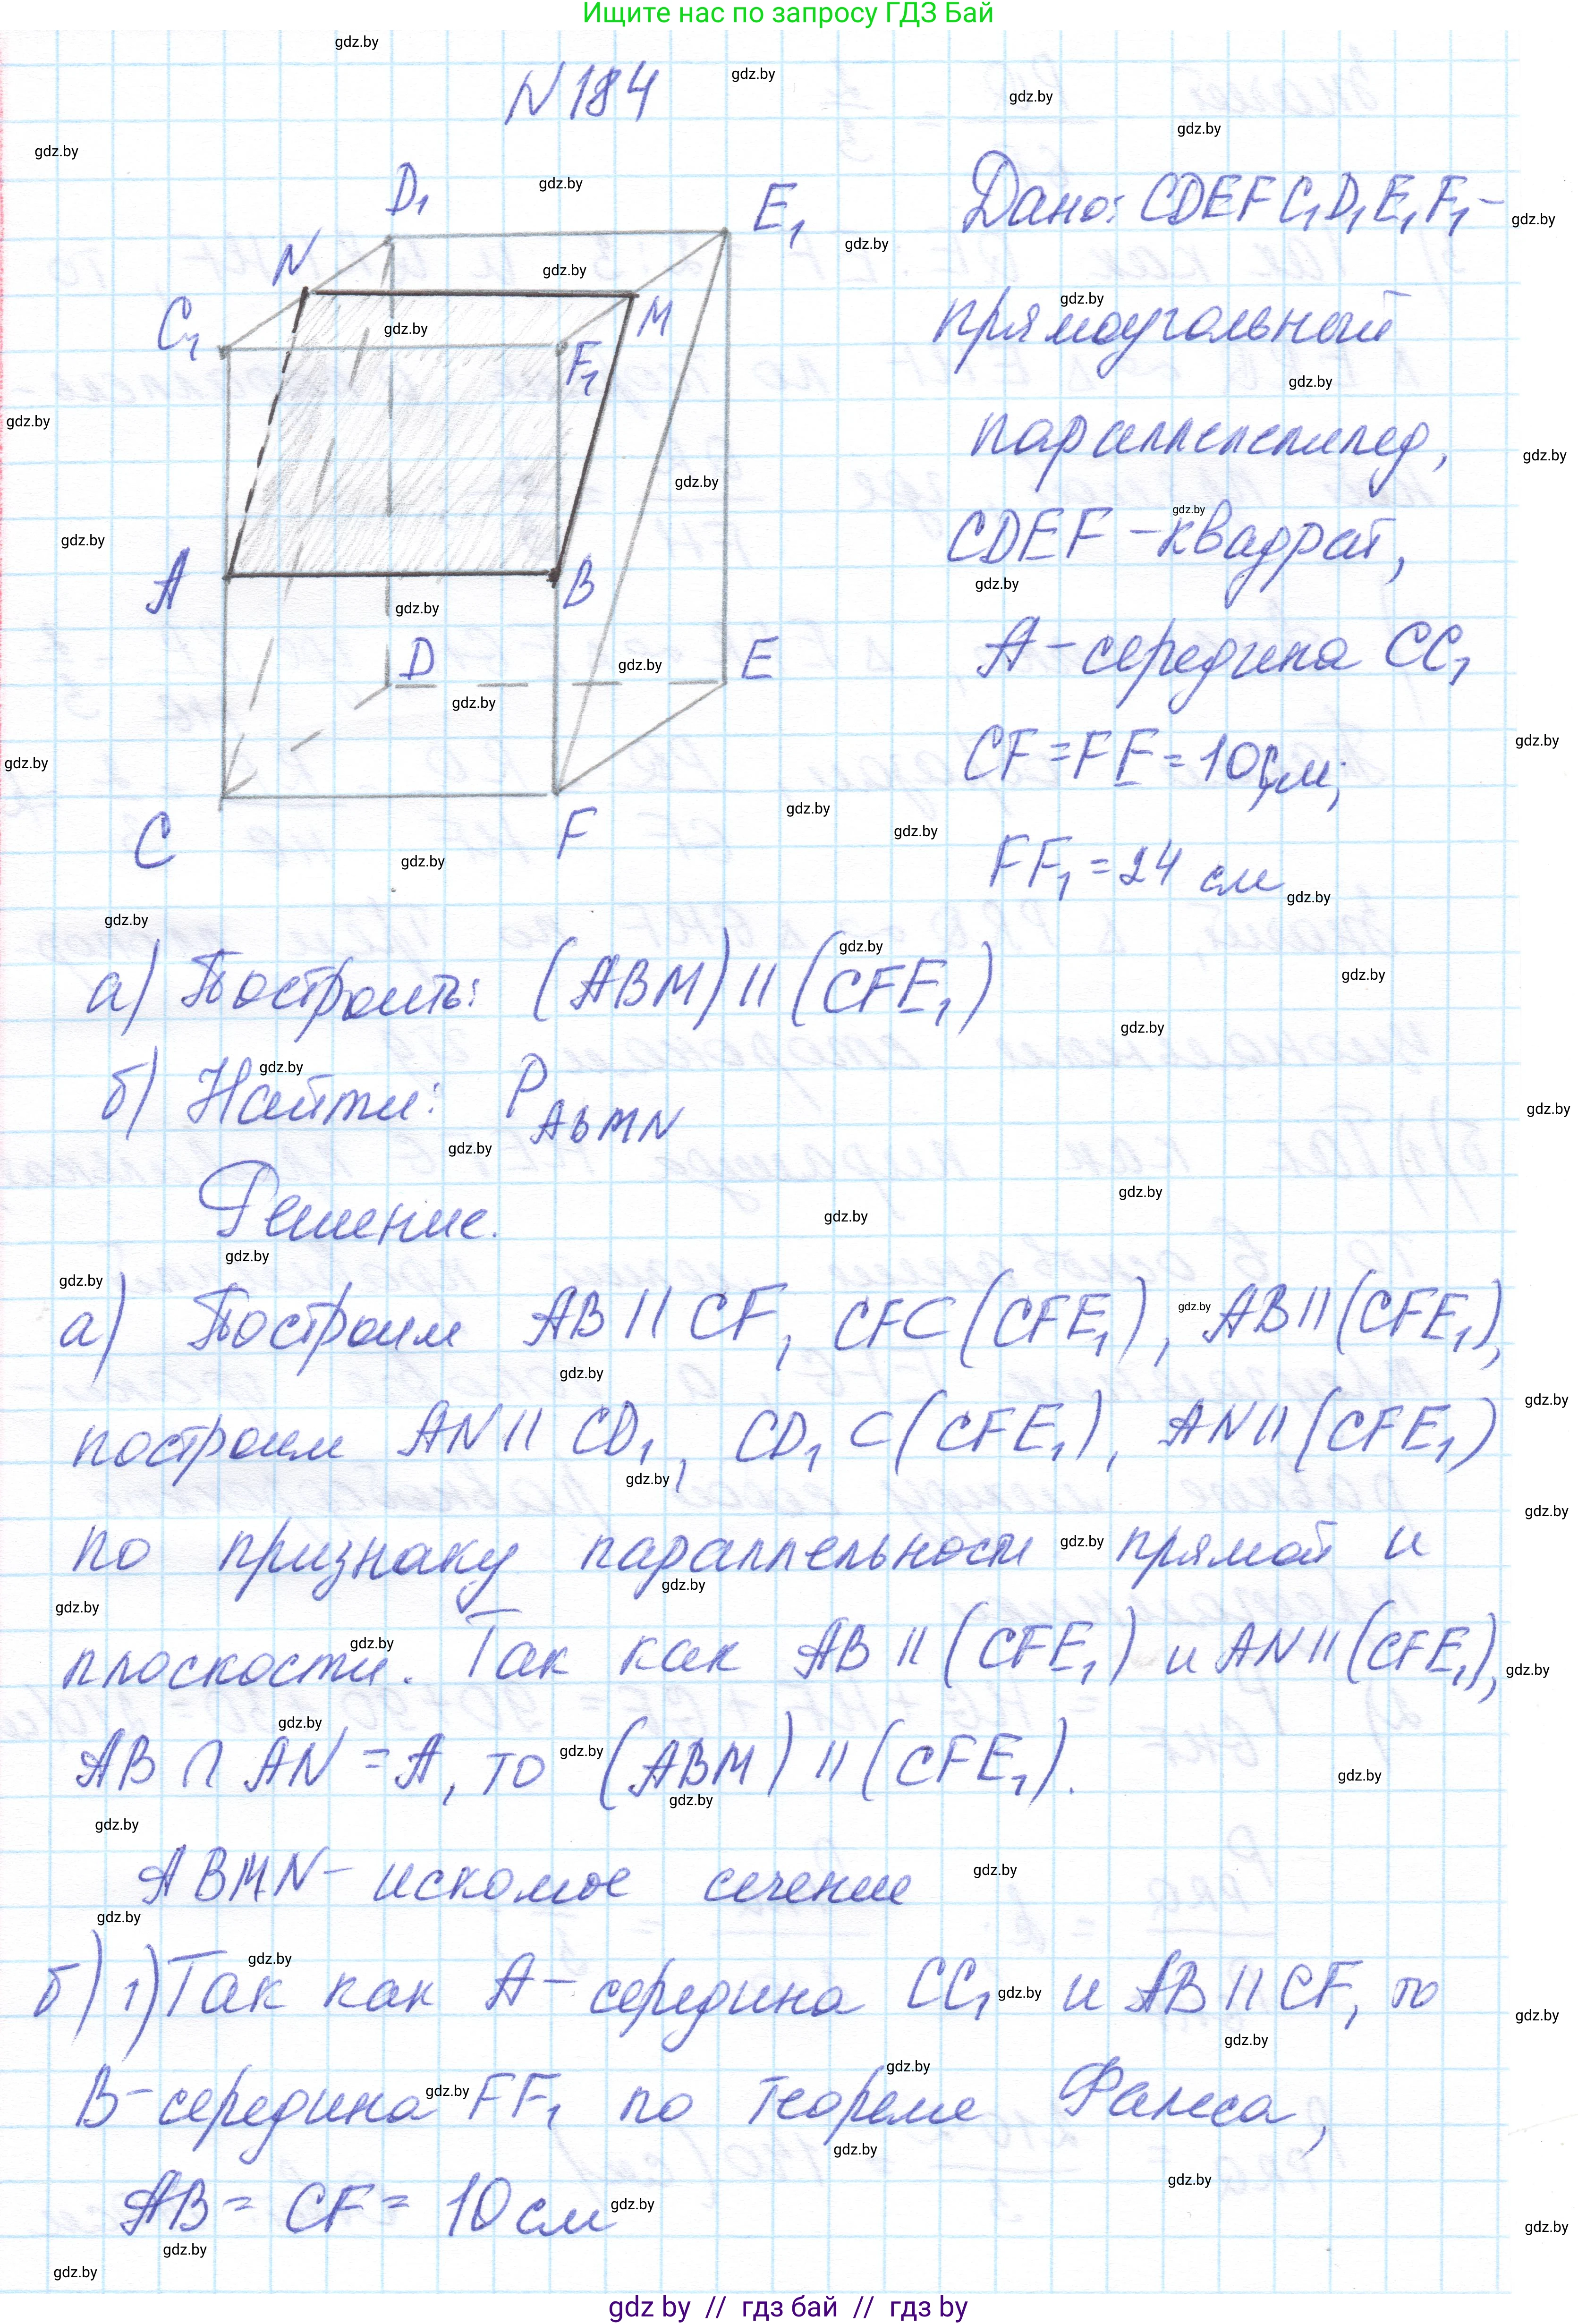 Ищите нас по запросу ГДЗ Бай
N184
Дано: CDEFC₁D₁E₁F₁-
прямоугольный
параллелепипед,
CDEF - квадрат,
A - середина CC₁
CF = FE = 10 см;
FF₁ = 24 см
D₁
E₁
N
C₁
M
F₁
A
B
D
E
C
F
а) Построить: (ABM) || (CFE₁)
б) Найти: P ABMN
Решение.
а) Построим AB || CF, CF⊂(CFE₁), AB||(CFE₁),
построим AN || CD₁, CD₁ ⊂ (CFE₁), AN||(CFE₁)
по признаку параллельности прямой и
плоскости. Так как AB || (CFE₁) и AN||(CFE₁),
AB ∩ AN = A, то (ABM) || (CFE₁).
ABMN - искомое сечение
б) 1) Так как A - середина CC₁ и AB || CF, то
B - середина FF₁ по теореме Фалеса,
AB = CF = 10 см
gdz by // гдз бай // гдз by